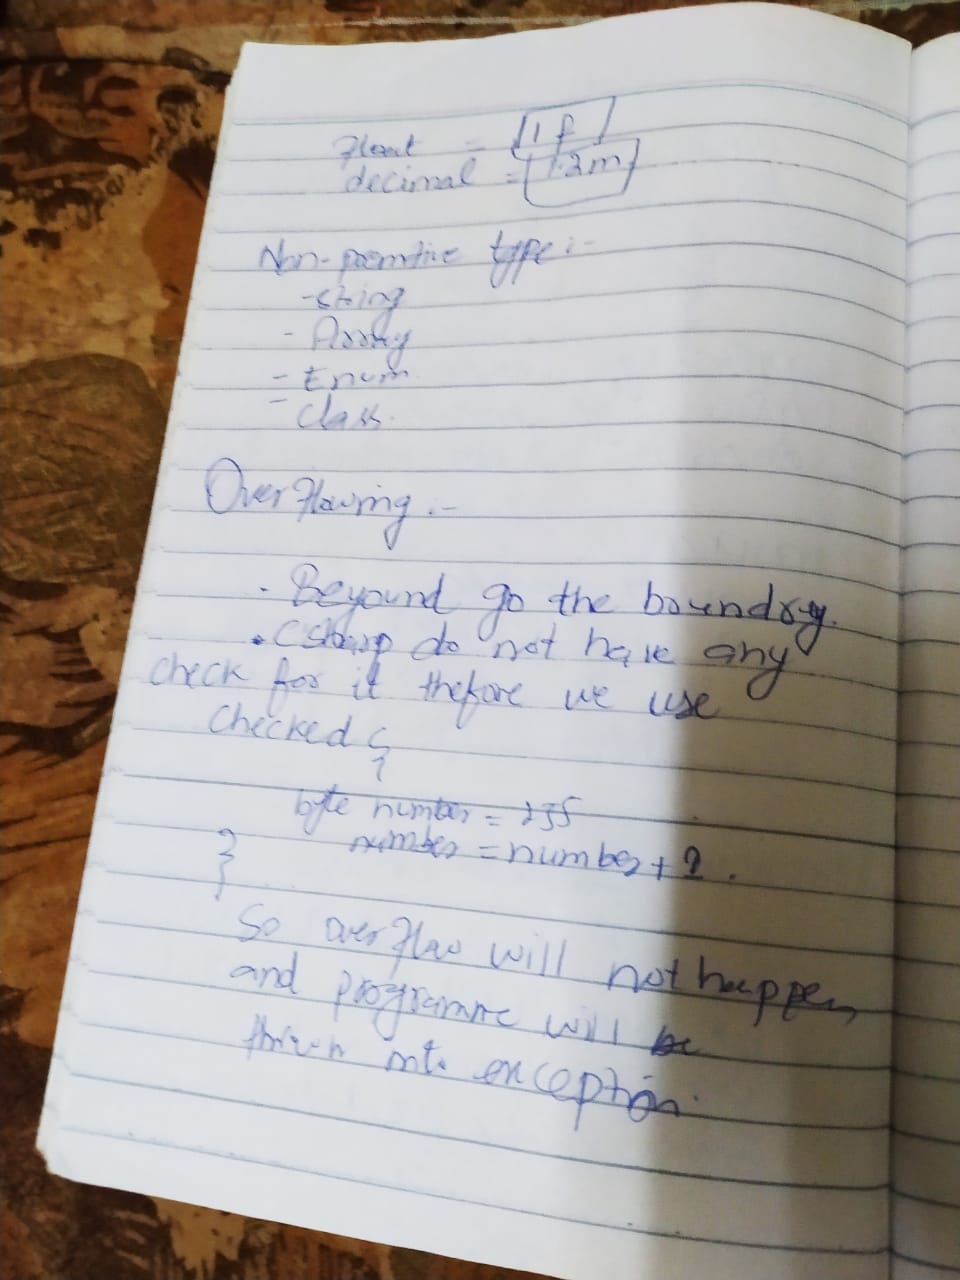 float = 1f
decimal = 1.2m
Non-premitive type :-
- string
- Array
- Enum
- Class.
Overflowing :-
. Beyound go the boundry.
. Csharp do not have any
check for it thefore we use
checked {
byte number = 255
number = number + 1 .
}
So overflow will not happen
and programme will be
thrown into exception.